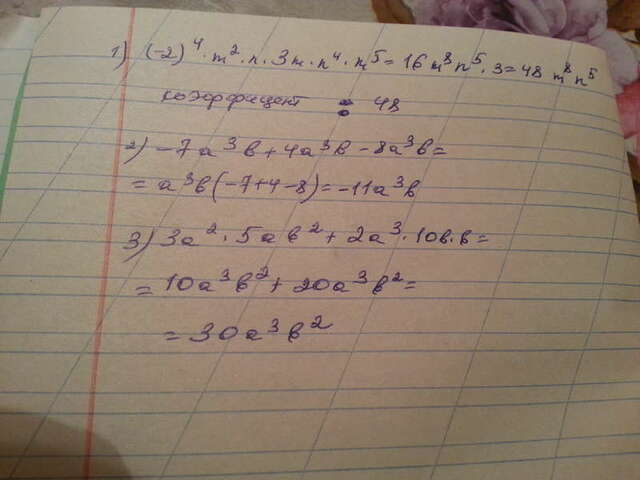 1) (-2)⁴·m²·n·3m·n⁴·m⁵=16m⁸n⁵·3=48m⁸n⁵
коэффициент = 48
2) -7a³b+4a³b-8a³b=
=a³b(-7+4-8)=-11a³b
3) 3a²·5ab²+2a³·10b·b=
=10a³b²+20a³b²=
=30a³b²